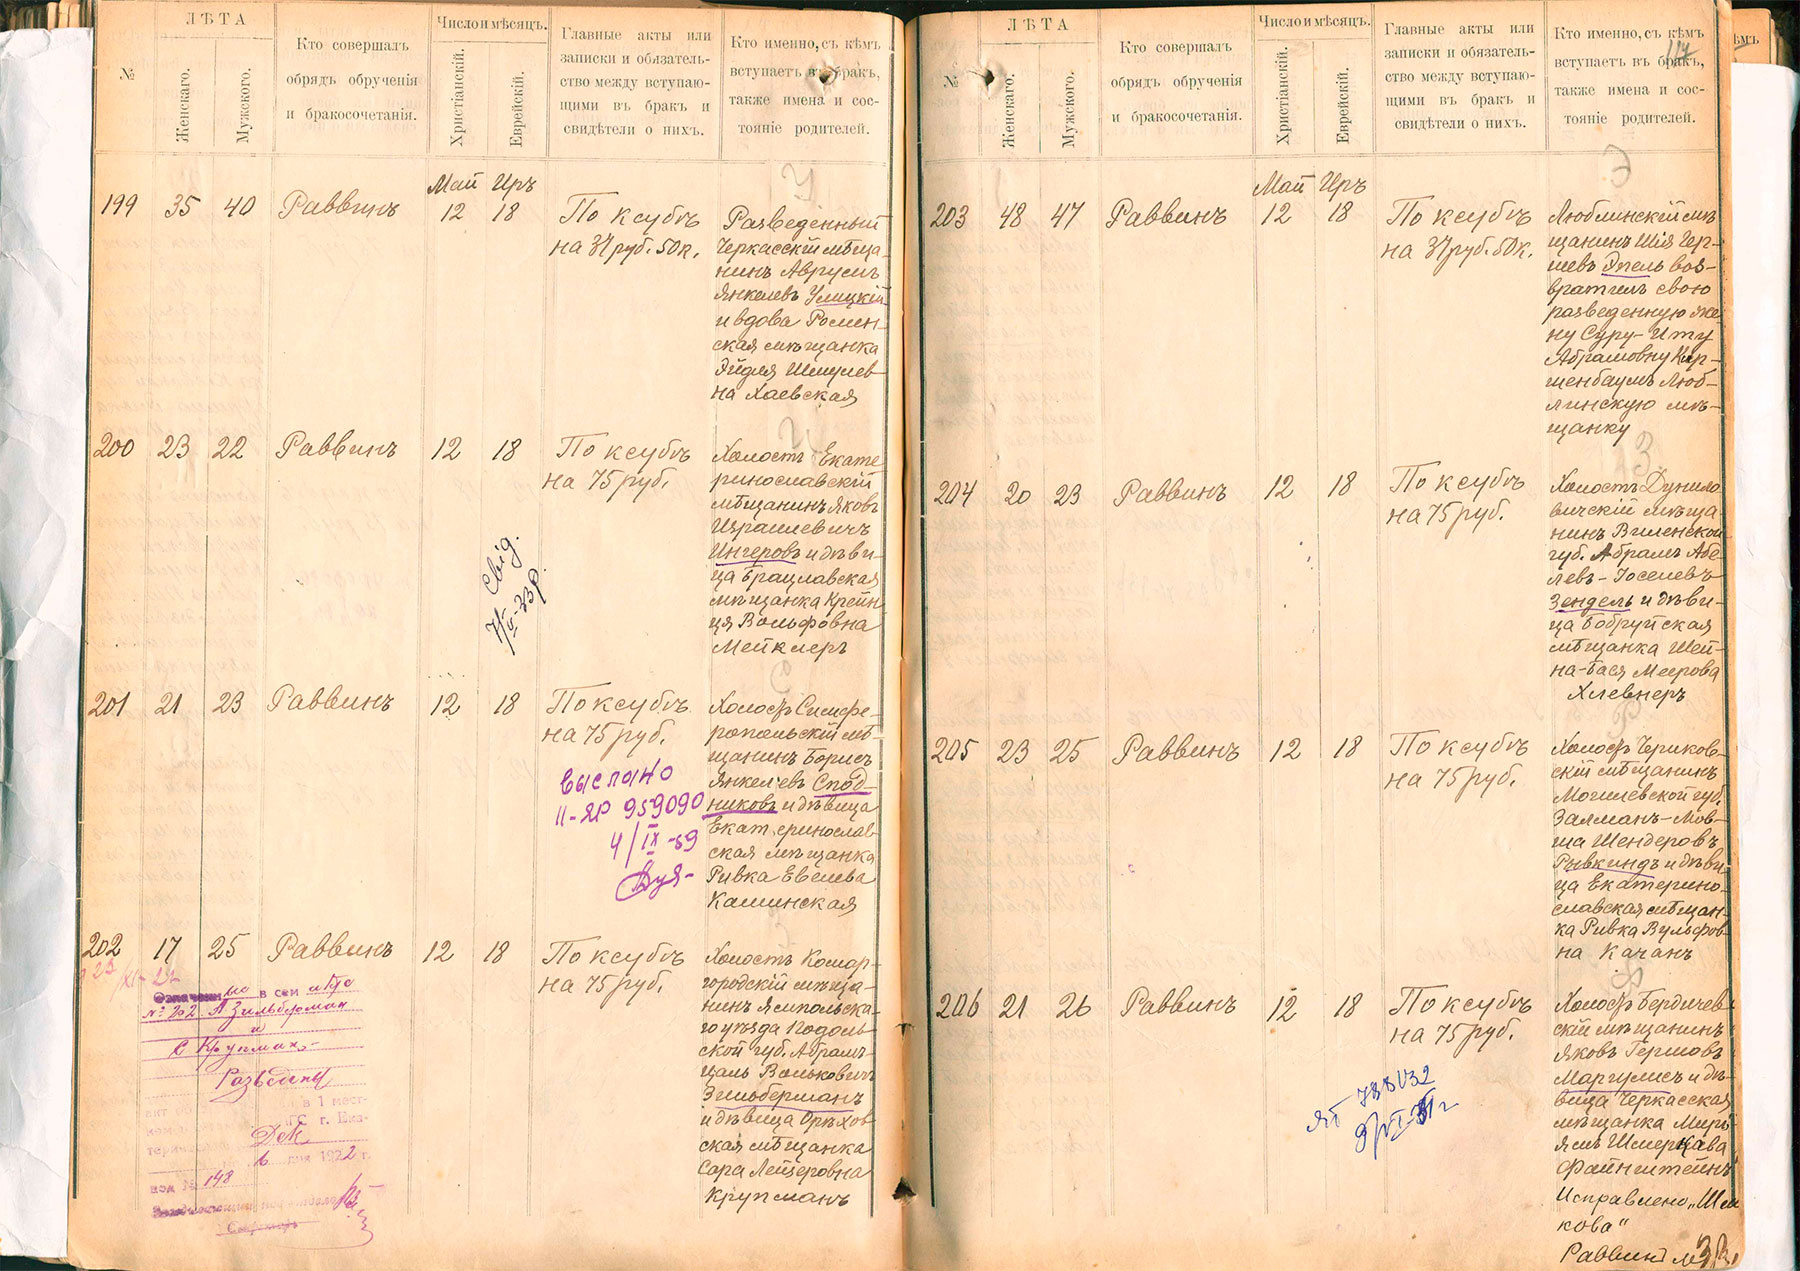 ЛѢТА
Число и мѣсяцъ.
№
Женскаго.
Мужского.
Кто совершалъ
обрядъ обрученія
и бракосочетанія.
Христіанскій.
Еврейскій.
Главные акты или
записки и обязатель-
ство между вступаю-
щими въ бракъ и
свидѣтели о нихъ.
Кто именно, съ кѣмъ
вступаетъ въ бракъ,
также имена и сос-
тояніе родителей.
Май Іръ
199 35 40 Раввинъ 12 18 По ксубѣ
на 37 руб. 50 к.
Разведенный
Черкасскій мѣща-
нинъ Аврумъ
Янкелевъ Улицкій
и вдова Ромен-
ская мѣщанка
Эйдля Шмулев-
на Хаевская
200 23 22 Раввинъ 12 18 По ксубѣ
на 75 руб.
Холостъ Екате-
ринославскій
мѣщанинъ Яковъ
Израилевичъ
Ингеровъ и дѣви-
ца Брацлавская
мѣщанка Крейн-
ця Вольфовна
Мейклеръ
Свід.
201 21 23 Раввинъ 12 18 По ксубѣ
на 75 руб.
Холостъ Симфе-
ропольскій мѣ-
щанинъ Борисъ
Янкелевъ Спод-
никовъ и дѣвица
Екатеринослав-
ская мѣщанка
Ривка Евелева
Каминская
выслано
II-ЯР 959090
4/IX-59
202 17 25 Раввинъ 12 18 По ксубѣ
на 75 руб.
Холостъ Комар-
городскій мѣща-
нинъ Ямпольска-
го уѣзда Подоль-
ской губ. Абрамъ-
Цаль Вольковичъ
Зильберманъ
и дѣвица Орѣхов-
ская мѣщанка
Сара Лейзеровна
Крупманъ
в сем акте
№ 202 А Зильберман
и
С Крупман
Разведены
в 1 мест-
г. Ека-
Дек
6 дня 1922 г.
под № 148
Секретарь
ЛѢТА
Число и мѣсяцъ.
№
Женскаго.
Мужского.
Кто совершалъ
обрядъ обрученія
и бракосочетанія.
Христіанскій.
Еврейскій.
Главные акты или
записки и обязатель-
ство между вступаю-
щими въ бракъ и
свидѣтели о нихъ.
Кто именно, съ кѣмъ
вступаетъ въ бракъ,
также имена и сос-
тояніе родителей.
117
Май Іръ
203 48 47 Раввинъ 12 18 По ксубѣ
на 37 руб. 50 к.
Люблинскій мѣ-
щанинъ Шія Гер-
шевъ Эпель воз-
вратилъ свою
разведенную же-
ну Суру-Иту
Абрамовну Кир-
шенбаумъ Люб-
линскую мѣ-
щанку
204 20 23 Раввинъ 12 18 По ксубѣ
на 75 руб.
Холостъ Дунило-
вичскій мѣща-
нинъ Виленской
губ. Абрамъ Абе-
левъ-Іоселевъ
Зендель и дѣви-
ца Бобруйская
мѣщанка Шей-
на-Бася Меерова
Хлевнеръ
205 23 25 Раввинъ 12 18 По ксубѣ
на 75 руб.
Холостъ Чериков-
скій мѣщанинъ
Могилевской губ.
Залманъ-Мов-
ша Шендеровъ
Рывкиндъ и дѣви-
ца Екатерино-
славская мѣщан-
ка Ривка Вульфов-
на Качанъ
206 21 26 Раввинъ 12 18 По ксубѣ
на 75 руб.
Холостъ Бердичев-
скій мѣщанинъ
Яковъ Гершовъ
Маргулисъ и дѣ-
вица Черкасская
мѣщанка Мирь-
ямъ Шмеркава
Файнштейнъ
Исправлено „Шм
кова“
Раввинъ